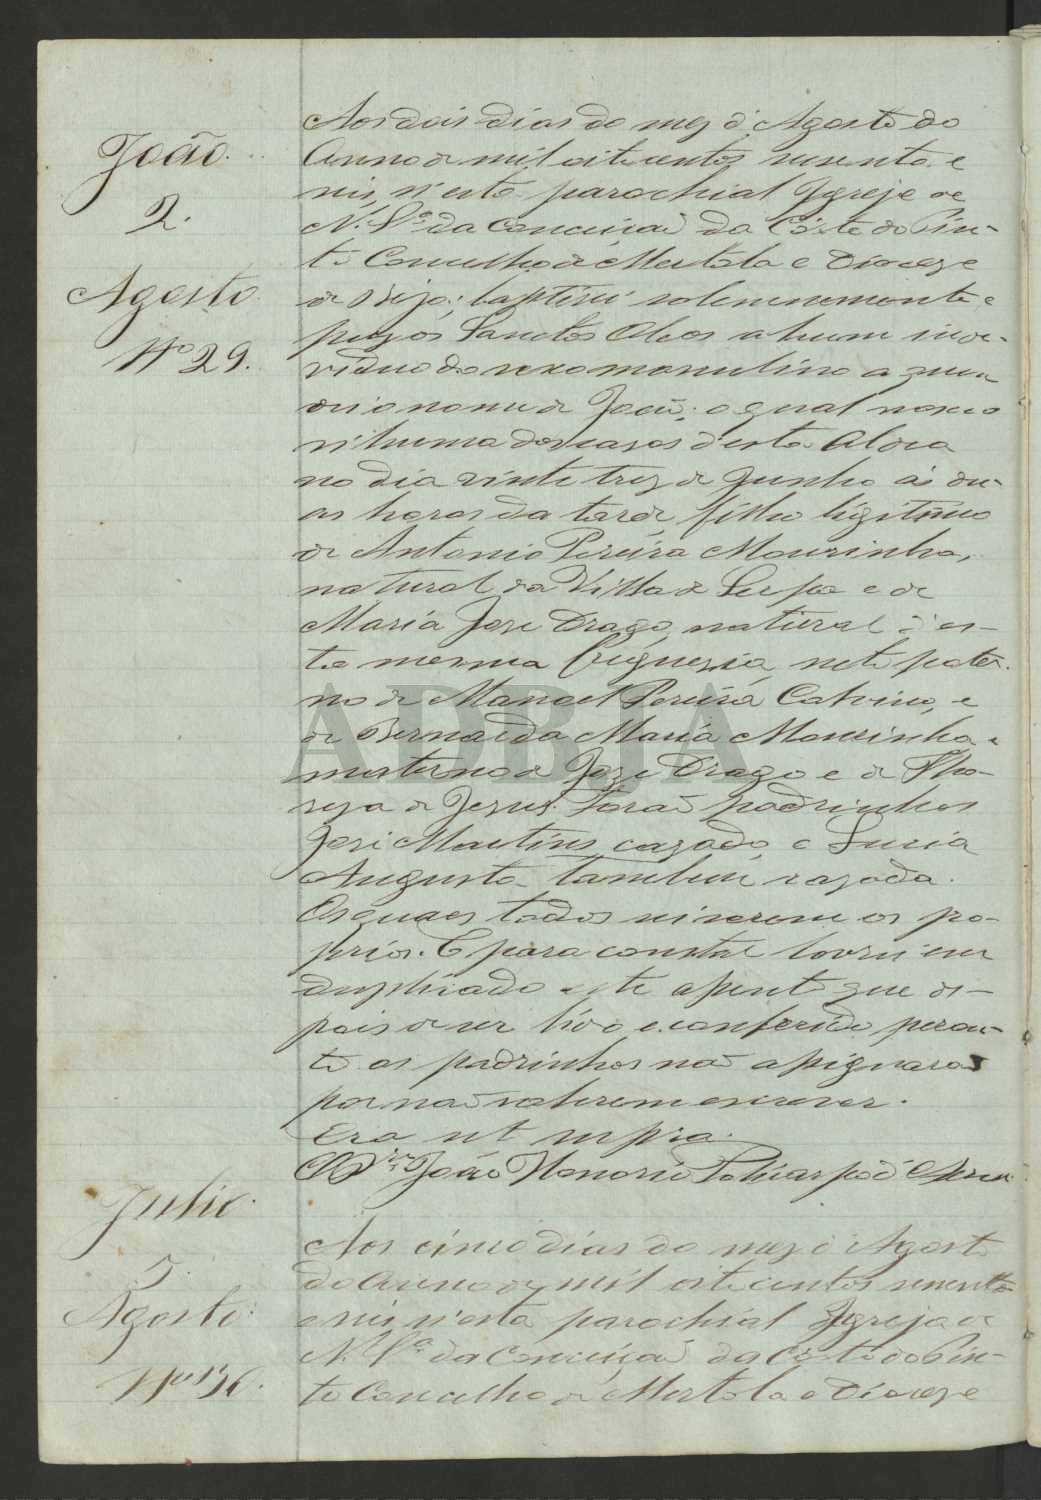 João.
2.
Agosto
Nº 29.
Aos dois dias do mez d'Agosto do
Anno de mil oitocentos sesenta e
seis, n'esta parochial Igreja de
N. Sª. da Conceição da Côrte do Pin-
to Concelho de Mertola e Dioceze
de Beja; baptisei solemnemente e
puz os Sanctos Oleos a hum indi-
viduo do sexo masculino a quem
dei o nome de João; o qual nasceo
n'huma das casas d'esta Aldea
no dia vinte trez de Junho ás du-
as horas da tarde, filho ligitimo
de Antonio Pereira Mourinho,
natural da Villa de Serpa e de
Maria Jose Drago, natural d'es-
ta mesma freguezia, neto pater-
no de Manoel Pereira Calvino, e
de Bernarda Maria Mourinha e
materno de Joze Drago e de The-
reza de Jezus. Forão padrinhos
José Martins cazado, e Lucia
Augusta tambem cazada.
Os quaes todos sei serem os pro-
prios. E para constar lavrei em
duplicado este assento que de-
pois de ser lido e conferido peran-
te os padrinhos não assignarão
por não saberem escrever.
Era ut supra.
O Pr. João Honorio Policarpo d'
Julio.
5.
Agosto
Nº
Aos cinco dias do mez d'Agosto
do Anno de mil oitocentos sesenta
e seis n'esta parochial Igreja de
N. Sª. da Conceição da Côrte do Pin-
to Concelho de Mertola e Dioceze
ADBJA